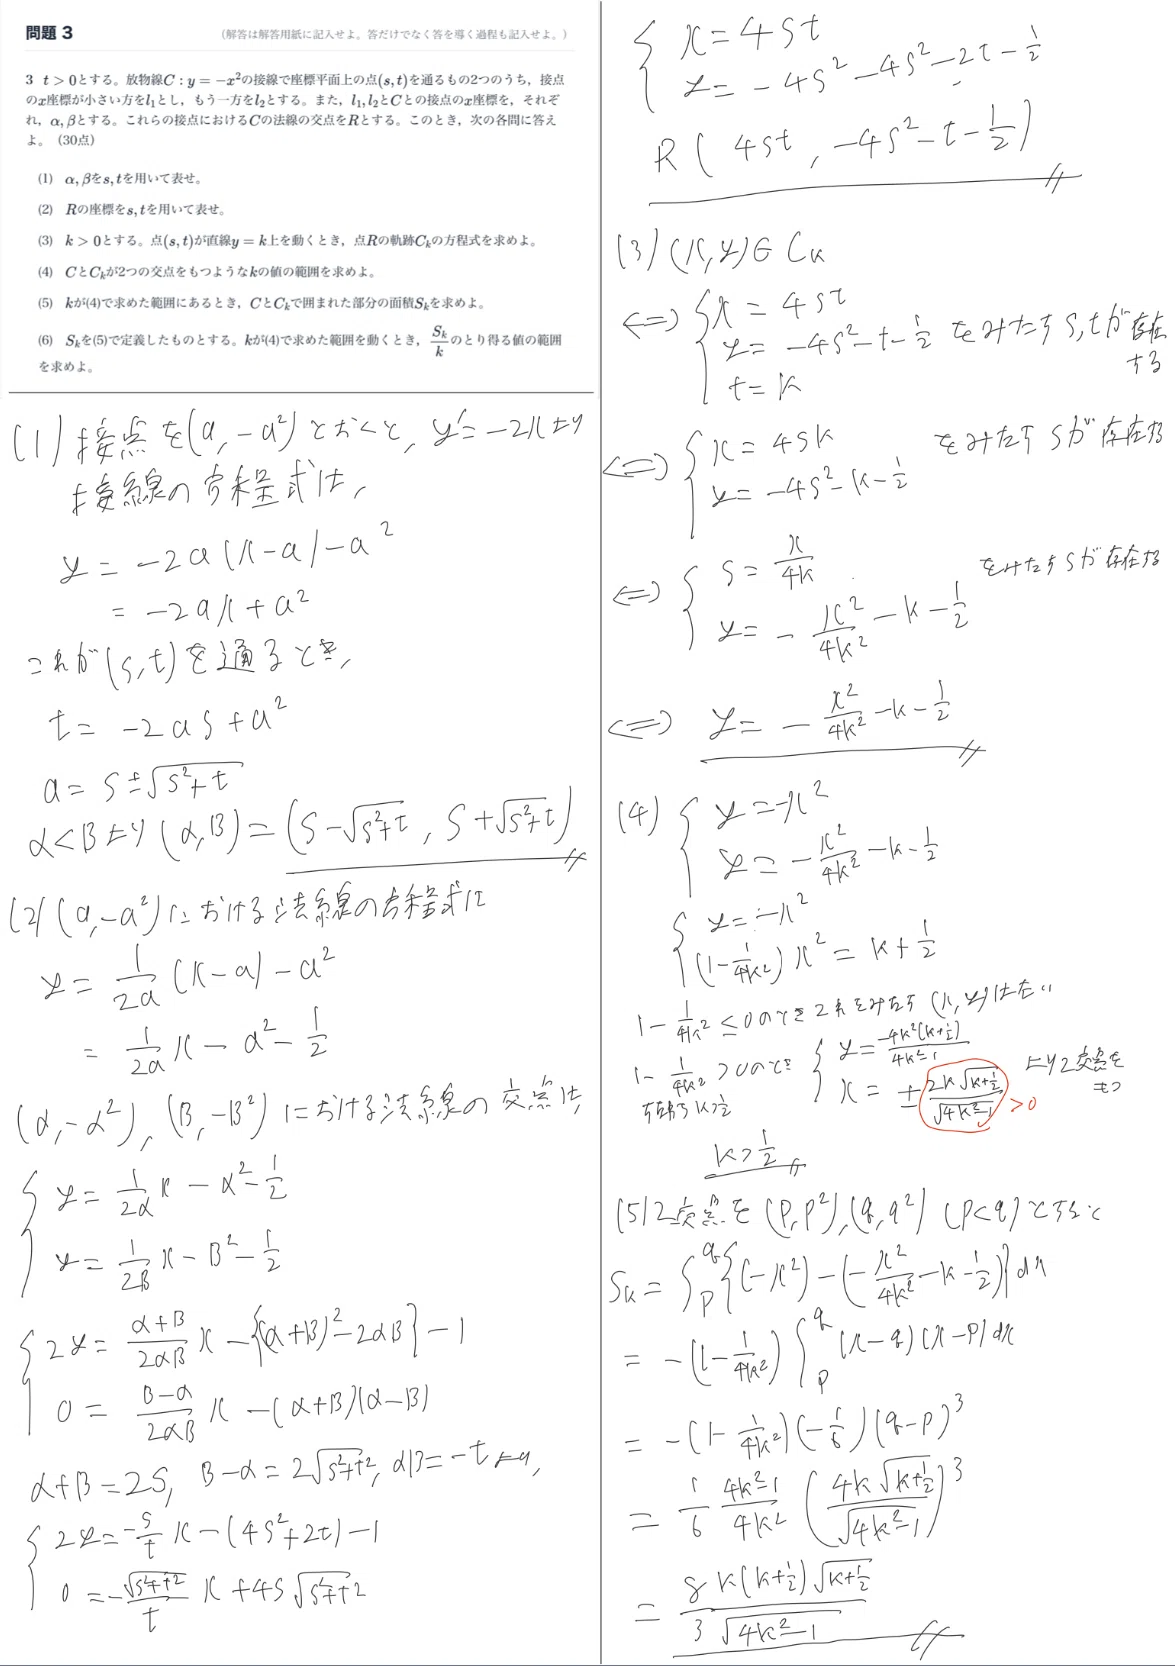 問題 3
(解答は解答用紙に記入せよ。答だけでなく答を導く過程も記入せよ。)
3 t > 0とする。放物線C : y = −x²の接線で座標平面上の点(s, t)を通るもの2つのうち，接点
のx座標が小さい方をl₁とし，もう一方をl₂とする。また，l₁, l₂とCとの接点のx座標を，それぞ
れ，α, βとする。これらの接点におけるCの法線の交点をRとする。このとき，次の各問に答え
よ。（30点）
(1) α, βをs, tを用いて表せ。
(2) Rの座標をs, tを用いて表せ。
(3) k > 0とする。点(s, t)が直線y = k上を動くとき，点Rの軌跡Cₖの方程式を求めよ。
(4) CとCₖが2つの交点をもつようなkの値の範囲を求めよ。
(5) kが(4)で求めた範囲にあるとき，CとCₖで囲まれた部分の面積Sₖを求めよ。
(6) Sₖを(5)で定義したものとする。kが(4)で求めた範囲を動くとき，Sₖ/kのとり得る値の範囲
を求めよ。
(1) 接点を(a, −a²)とおくと, y' = −2xより
接線の方程式は,
y = −2a(x−a)−a²
= −2ax + a²
これが(s, t)を通るとき,
t = −2as + a²
a = s ± √(s²+t)
α < β より (α, β) = (s−√(s²+t), s+√(s²+t))
(2) (a, −a²)における法線の方程式は
y = 1/2a (x−a) − a²
= 1/2a x − a² − 1/2
(α, −α²), (β, −β²)における法線の交点は,
{ y = 1/2α x − α² − 1/2
y = 1/2β x − β² − 1/2
{ 2y = (α+β)/2αβ x − {(α+β)² − 2αβ} − 1
0 = (β−α)/2αβ x − (α+β)(α−β)
α+β = 2s, β−α = 2√(s²+t²), αβ = −t より,
{ 2y = −s/t x − (4s²+2t) − 1
0 = −√(s²+t²)/t x + 4s√(s²+t²)
{ x = 4st
y = −4s² −4s² −2t − 1/2
R ( 4st, −4s² − t − 1/2 )
(3) (x, y) ∈ Cₖ
⇔ { x = 4st
y = −4s² − t − 1/2 をみたすs, tが存在する
t = k
⇔ { x = 4sk をみたすsが存在する
y = −4s² − k − 1/2
⇔ { s = x/4k をみたすsが存在する
y = − x²/4k² − k − 1/2
⇔ y = − x²/4k² − k − 1/2
(4) { y = −x²
y = − x²/4k² − k − 1/2
{ y = −x²
(1 − 1/4k²) x² = k + 1/2
1 − 1/4k² ≤ 0のときこれをみたす(x, y)はない
1 − 1/4k² > 0のとき { y = −4k²(k+1/2)/4k²−1
すなわちk>1/2 x = ± 2k√(k+1/2)/√(4k²−1) > 0 より2交点をもつ
k > 1/2
(5) 2交点を (p, p²), (q, q²) (p<q) とすると
Sₖ = ∫ₚ^q {(−x²) − (− x²/4k² − k − 1/2)} dx
= −(1 − 1/4k²) ∫ₚ^q (x−q)(x−p) dx
= −(1 − 1/4k²)(−1/6)(q−p)³
= 1/6 (4k²−1)/4k² ( 4k√(k+1/2) / √(4k²−1) )³
= 8k(k+1/2)√(k+1/2) / 3√(4k²−1)